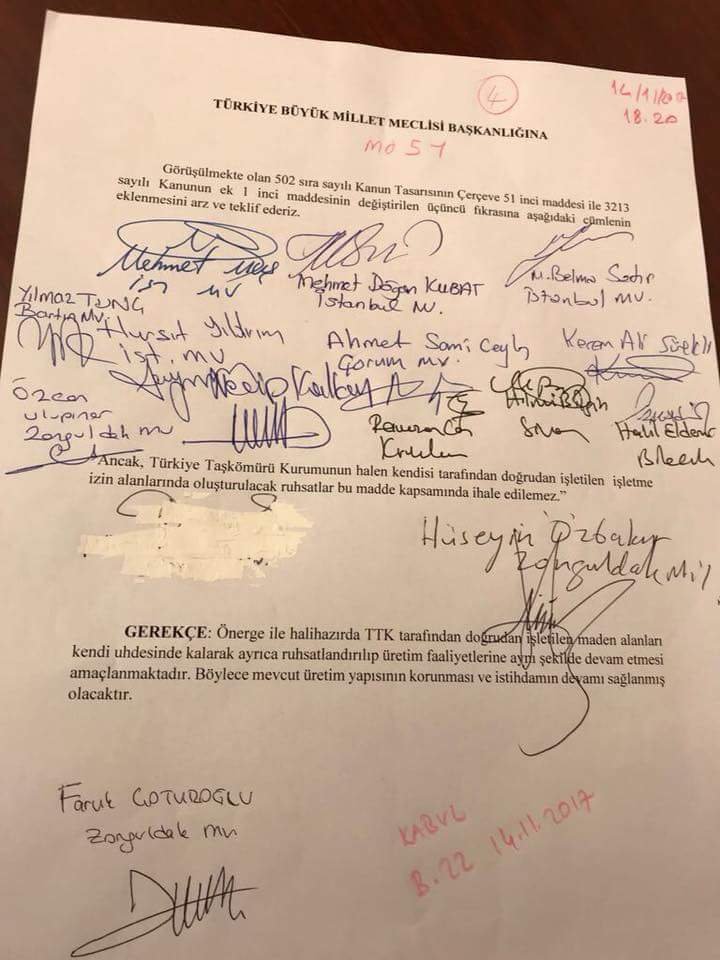 4
14/11/2017
18.20
TÜRKİYE BÜYÜK MİLLET MECLİSİ BAŞKANLIĞINA
MD 51
Görüşülmekte olan 502 sıra sayılı Kanun Tasarısının Çerçeve 51 inci maddesi ile 3213
sayılı Kanunun ek 1 inci maddesinin değiştirilen üçüncü fıkrasına aşağıdaki cümlenin
eklenmesini arz ve teklif ederiz.
Mehmet
İst MV
Mehmet Doğan KUBAT
İstanbul Mv.
M. Belma
İstanbul MV.
Yılmaz TUNÇ
Bartın Mv.
Hurşit Yıldırım
İst. mv
Ahmet Sami Ceylan
Çorum mv.
Kerem Ali Sürekli
Özcan
ulupınar
Zonguldak mv
Ramazan Can
Kırıkkale
Hilmi Bilgin
Sivas
Halil Eldemir
Bilecik
"Ancak, Türkiye Taşkömürü Kurumunun halen kendisi tarafından doğrudan işletilen işletme
izin alanlarında oluşturulacak ruhsatlar bu madde kapsamında ihale edilemez."
Hüseyin Özbakır
Zonguldak Mil
GEREKÇE: Önerge ile halihazırda TTK tarafından doğrudan işletilen maden alanları
kendi uhdesinde kalarak ayrıca ruhsatlandırılıp üretim faaliyetlerine aynı şekilde devam etmesi
amaçlanmaktadır. Böylece mevcut üretim yapısının korunması ve istihdamın devamı sağlanmış
olacaktır.
Faruk ÇATUROĞLU
Zonguldak mv
KABUL
B.22 14.11.2017